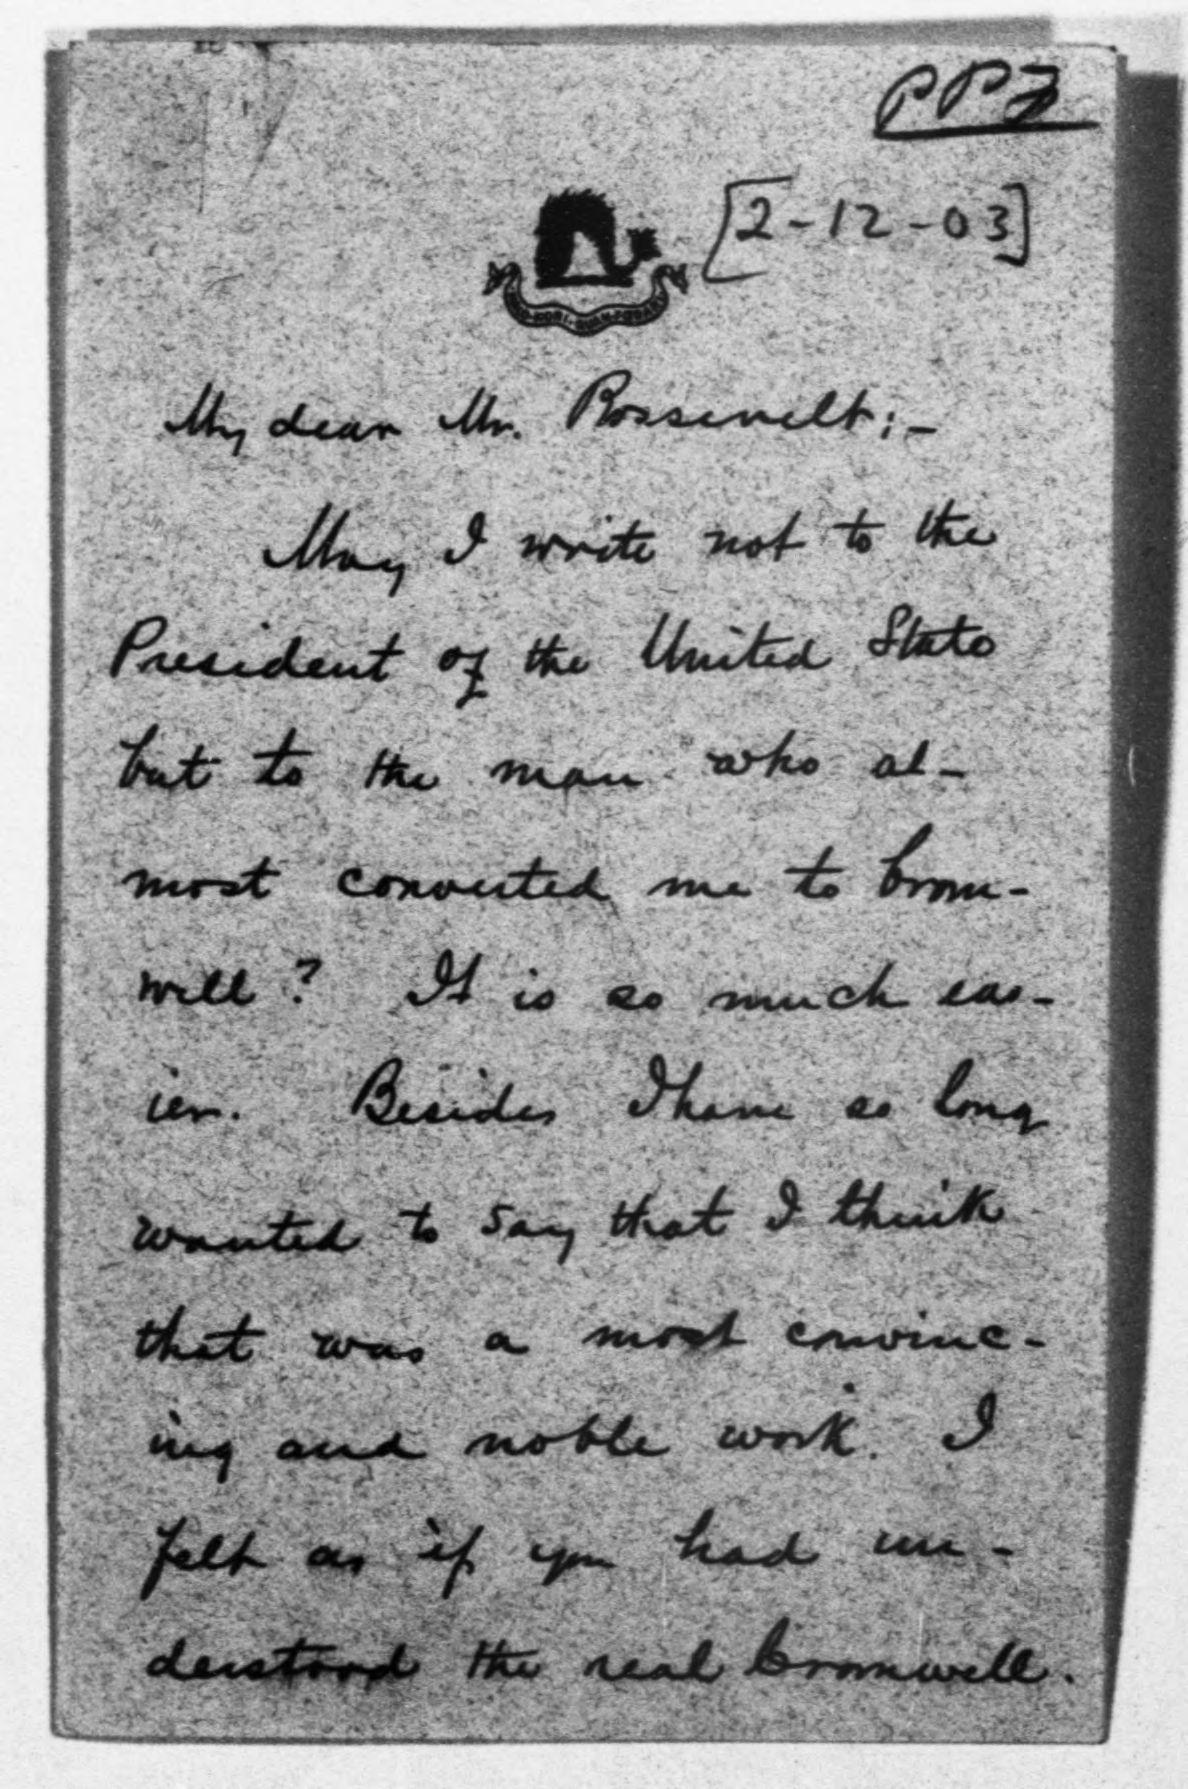 PPF
[2-12-03]
My dear Mr. Roosevelt:-
May I write not to the
President of the United States
but to the man who al-
most converted me to Crom-
well? It is so much eas-
ier. Besides I have so long
wanted to say that I think
that was a most convinc-
ing and noble work. I
felt as if you had un-
derstood the real Cromwell.